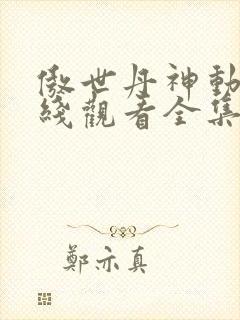 傲世丹神動
綫觀看全集
鄭亦真